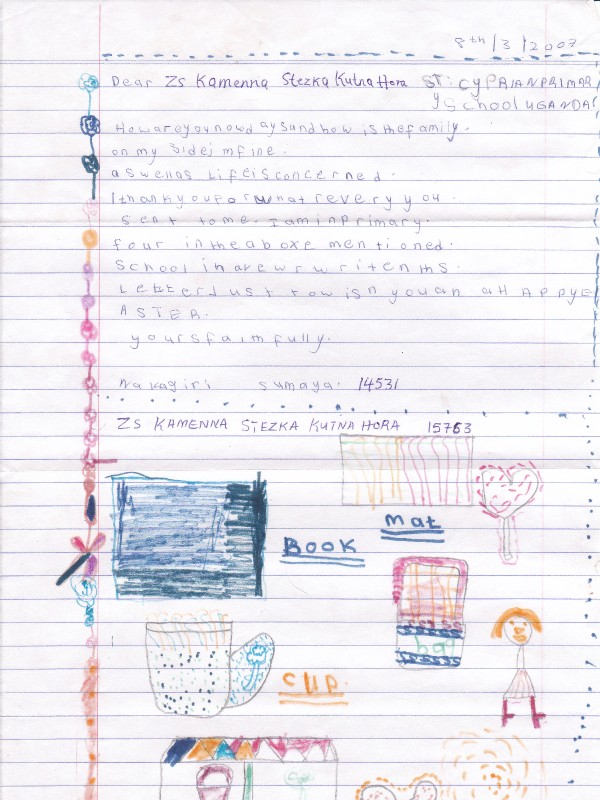 8th/3/2007
Dear ZS Kamenna Stezka Kutna Hora ST: CYPRIAN PRIMAR
Y School UGANDA
How are you now days and how is the family.
on my side im fine.
as well as Life is concerned.
I thank you for what revery you
sent to me. I am in primary.
four in the aboxe mentioned.
School in are w writen ths.
Letter Just tow isn you an a HAPPY E
ASTER.
yours faithfully.
Nakagiri Sumaya. 14531
ZS KAMENNA STEZKA KUTNA HORA 15763
mat
BOOK
bag
cup